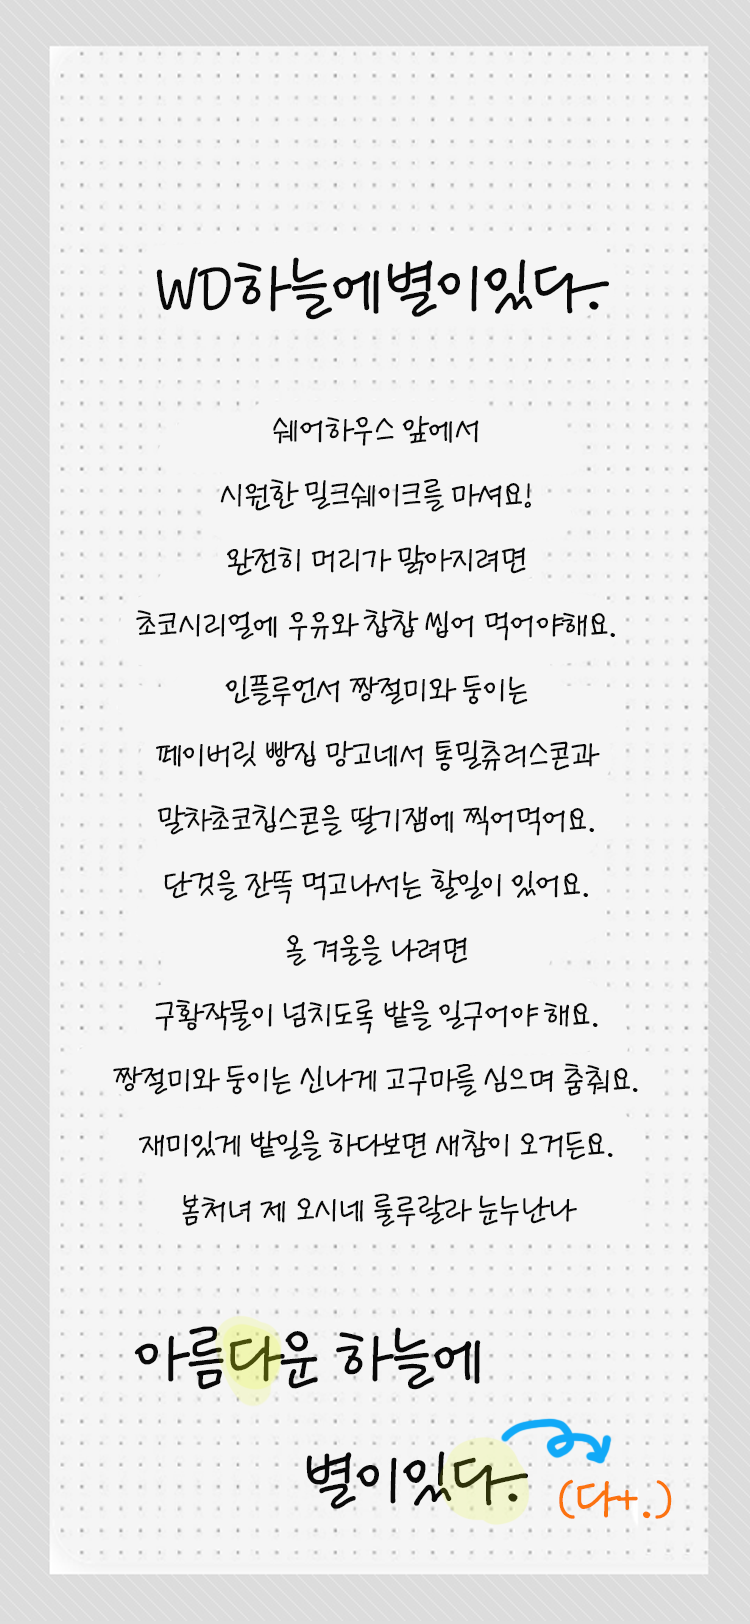 WD하늘에별이있다.
쉐어하우스 앞에서
시원한 밀크쉐이크를 마셔요!
완전히 머리가 맑아지려면
초코시리얼에 우유와 찹찹 씹어 먹어야해요.
인플루언서 짱절미와 둥이는
페이버릿 빵집 망고네서 통밀츄러스콘과
말차초코칩스콘을 딸기잼에 찍어먹어요.
단것을 잔뜩 먹고나서는 할일이 있어요.
올 겨울을 나려면
구황작물이 넘치도록 밭을 일구어야 해요.
짱절미와 둥이는 신나게 고구마를 심으며 춤춰요.
재미있게 밭일을 하다보면 새참이 오거든요.
봄처녀 제 오시네 룰루랄라 눈누난나
아름다운 하늘에
별이있다.
(다+.)